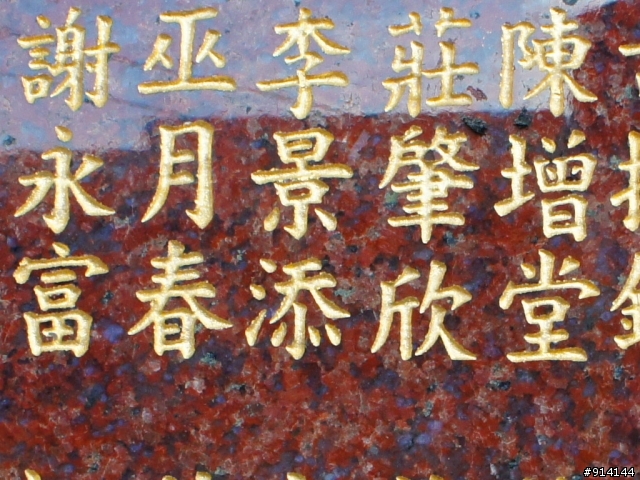 陳增堂
莊肇欣
李景添
巫月春
謝永富
#914144